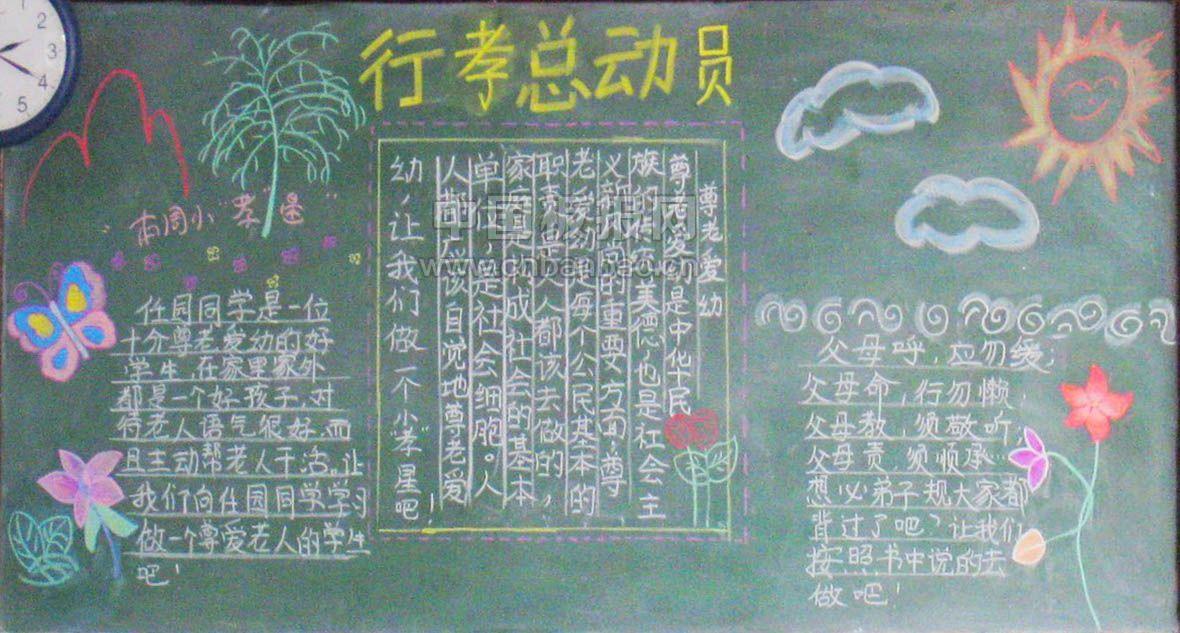 行孝总动员
"本周小"孝"星"
任园同学是一位
十分尊老爱幼的好
学生,在家里家外
都是一个好孩子,对
待老人语气很好,而
且主动帮老人干活。让
我们向任园同学学习
做一个尊爱老人的学生
吧!
尊老爱幼
尊老爱幼是中华民
族的传统美德,也是社会主
义新风尚的重要方面,尊
老爱幼是每个公民基本的
职责,是人人都该去做的,
家庭是构成社会的基本
单位,是社会细胞。人
人都应该自觉地尊老爱
幼,让我们做一个小"孝"星吧!
父母呼,应勿缓;
父母命,行勿懒,
父母教,须敬听,
父母责,须顺承…
想必弟子规大家都
背过了吧?让我们
按照书中说的去
做吧!
中国板报网
www.chbanbao.cn
1
2
3
4
5